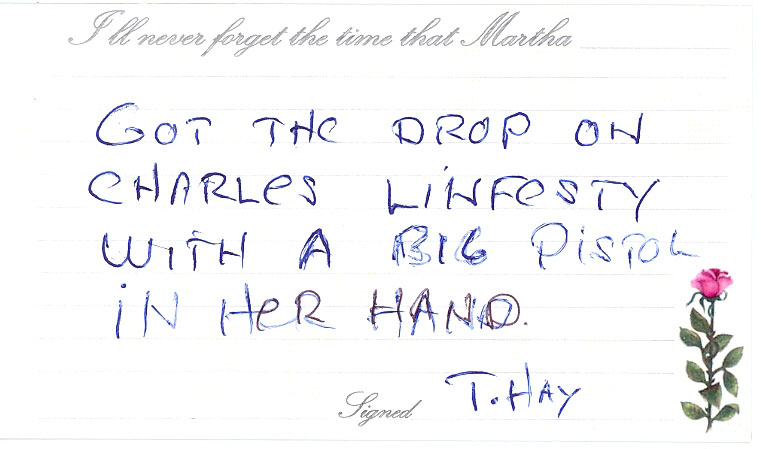 I'll never forget the time that Martha
GOT THE DROP ON
CHARLES LINFESTY
WITH A BIG PISTOL
IN HER HAND.
Signed T. HAY